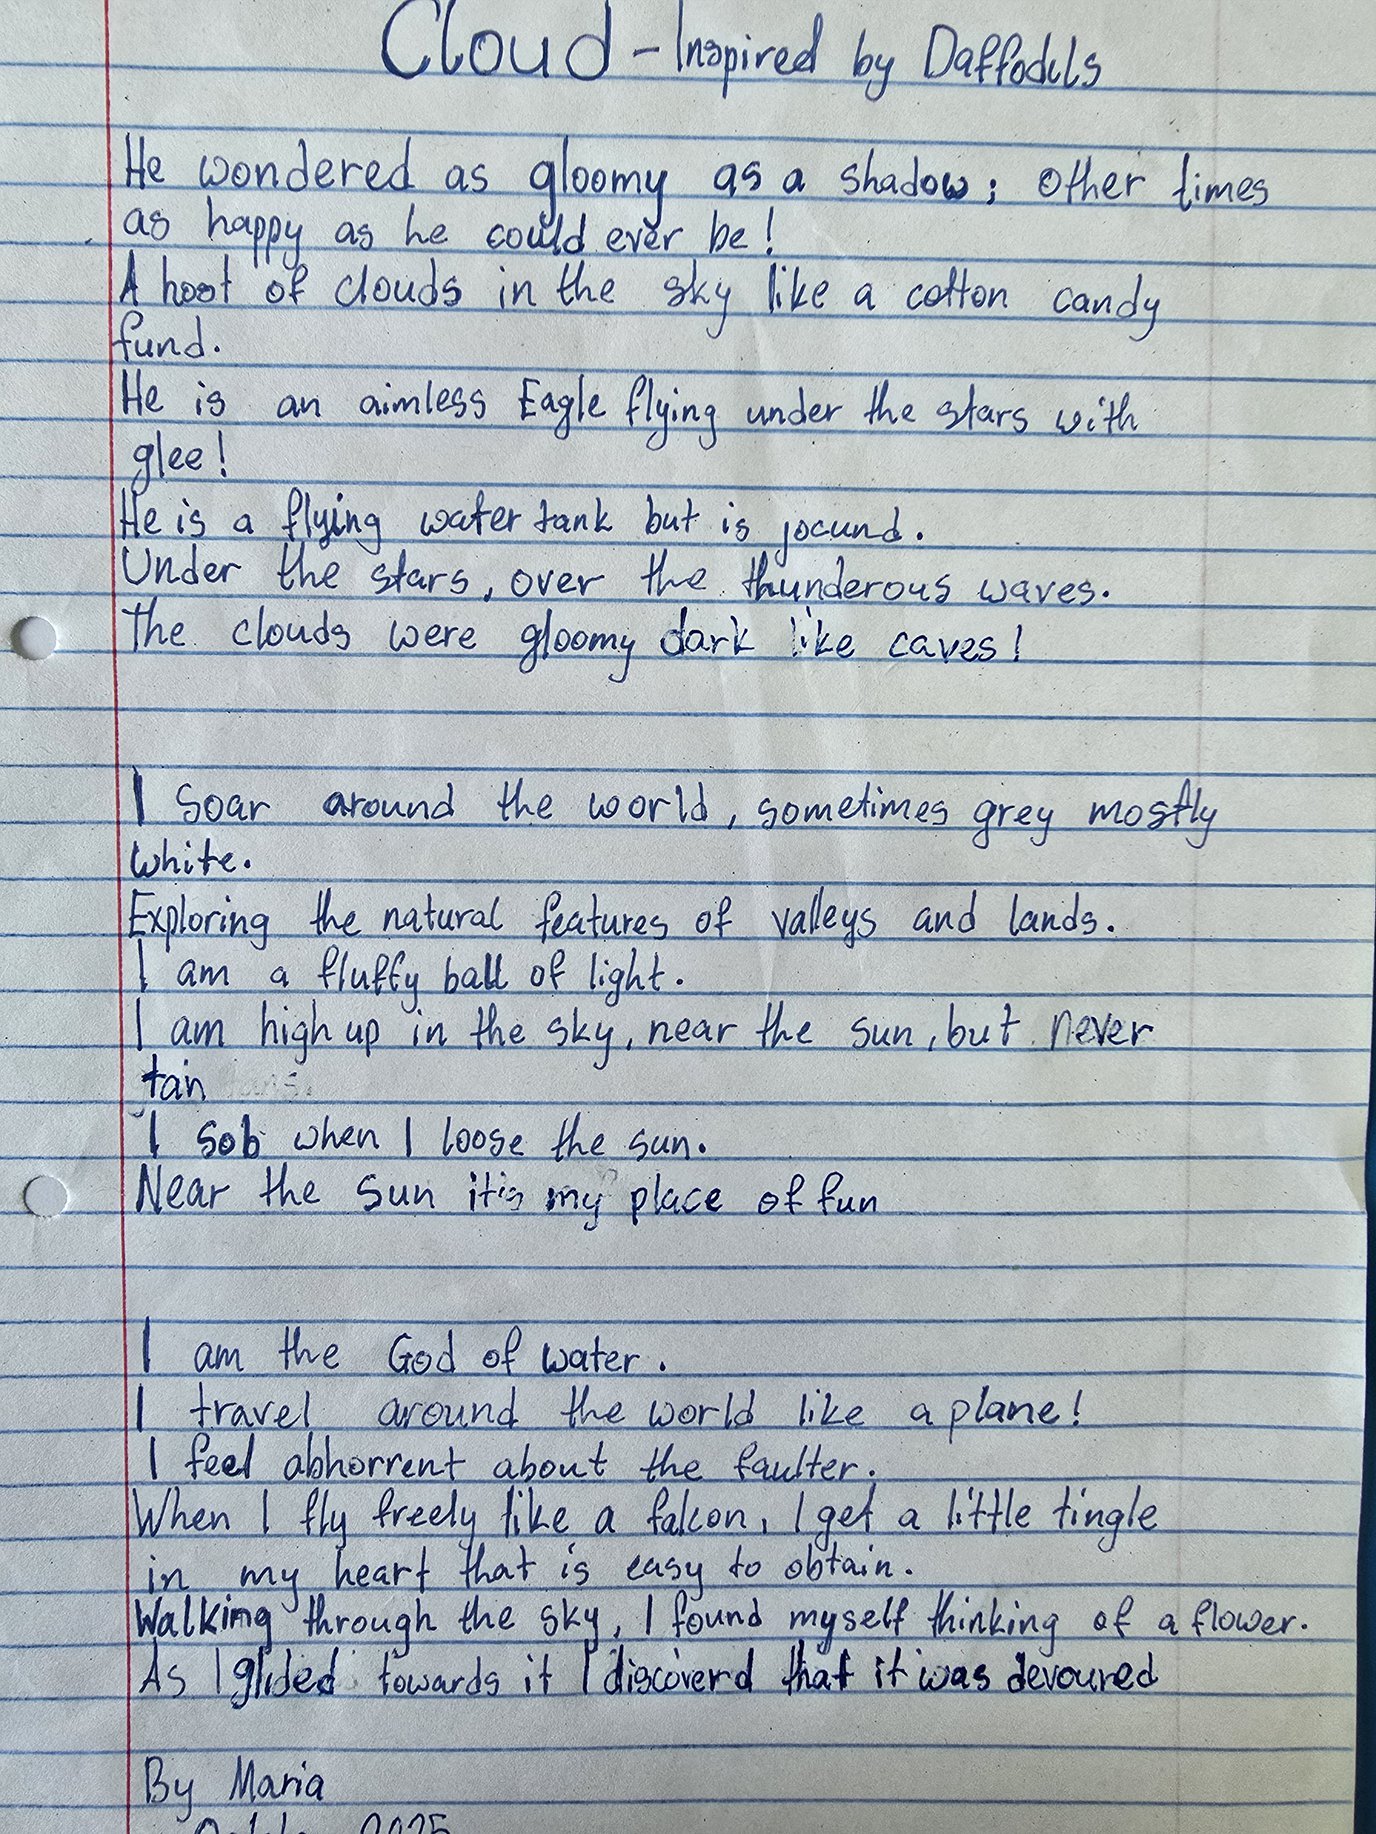 Cloud - Inspired by Daffodils
He wondered as gloomy as a shadow; other times
as happy as he could ever be!
A host of clouds in the sky like a cotton candy
fund.
He is an aimless Eagle flying under the stars with
glee!
He is a flying water tank but is jocund.
Under the stars, over the thunderous waves.
The clouds were gloomy dark like caves!
I soar around the world, sometimes grey mostly
white.
Exploring the natural features of valleys and lands.
I am a fluffy ball of light.
I am high up in the sky, near the sun, but never
tan
I sob when I loose the sun.
Near the sun it is my place of fun
I am the God of water.
I travel around the world like a plane!
I feel abhorrent about the faulter.
When I fly freely like a falcon, I get a little tingle
in my heart that is easy to obtain.
Walking through the sky, I found myself thinking of a flower.
As I glided towards it I discoverd that it was devoured
By Maria
2025